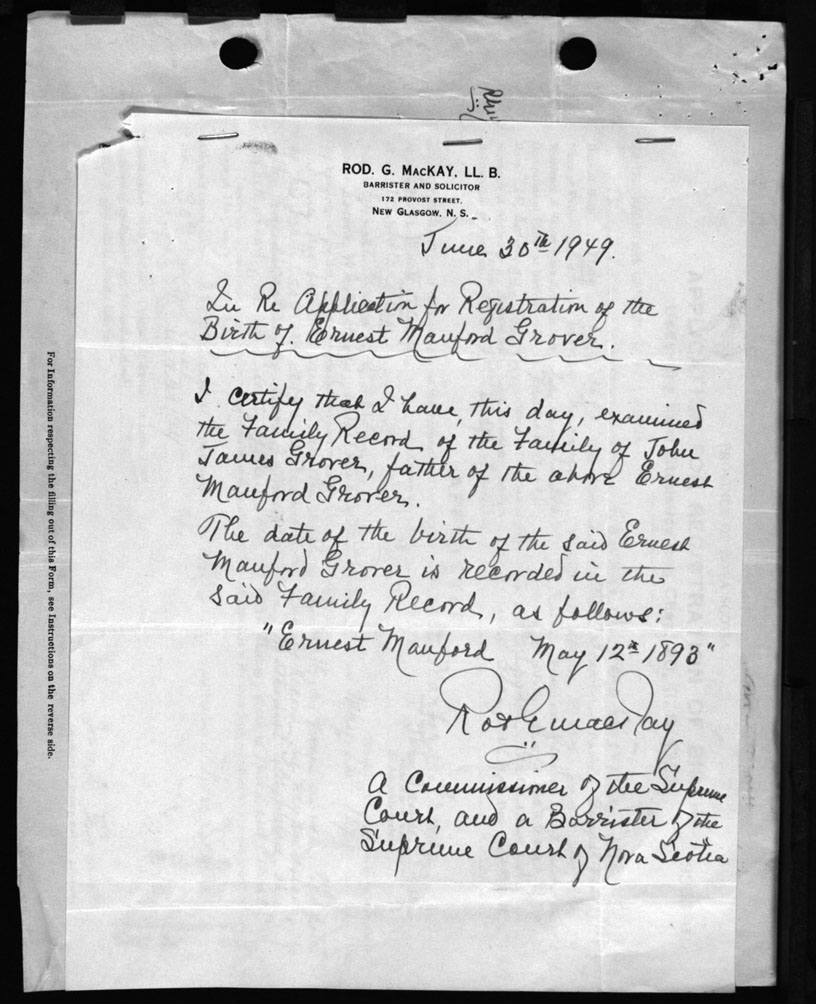 ROD. G. MacKAY, LL. B.
BARRISTER AND SOLICITOR
172 PROVOST STREET,
NEW GLASGOW, N. S.
June 30th 1949.
In Re Application for Registration of the
Birth of Ernest Manford Grover.
I certify that I have, this day, examined
the Family Record of the Family of John
James Grover, father of the above Ernest
Manford Grover.
The date of the birth of the said Ernest
Manford Grover is recorded in the
said Family Record, as follows:
"Ernest Manford May 12th 1893"
Rod G MacKay
A Commissioner of the Supreme
Court, and a Barrister of the
Supreme Court of Nova Scotia
For Information respecting the filling out of this Form, see Instructions on the reverse side.